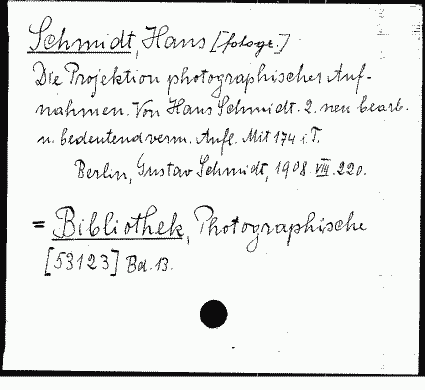 Schmidt, Hans [fotogr.]
Die Projektion photographischer Auf-
nahmen. Von Hans Schmidt. 2. neu bearb.
u. bedeutend verm. Aufl. Mit 174 i. T.
Berlin, Gustav Schmidt, 1908. VIII. 220.
= Bibliothek, Photographische
[53123] Bd. 13.